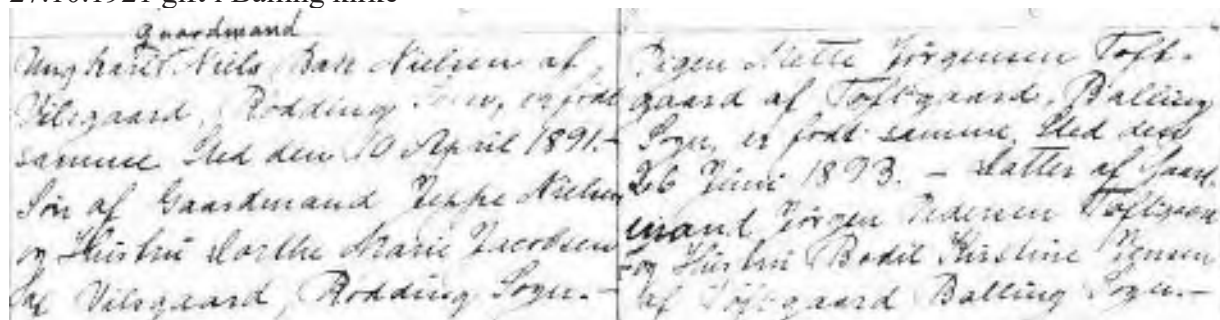 27.10.1921 gift i Balling kirke
Gaardmand
Ungkarl Niels Bak Nielsen af
Vilsgaard, Rødding Sogn, er født
samme Sted den 10 April 1891.-
Søn af Gaardmand Jeppe Nielsen
og Hustru Dorthe Marie Jacobsen
af Vilsgaard, Rødding Sogn.-
Pigen Mette Jørgensen Toft-
gaard af Toftgaard, Balling
Sogn, er født samme Sted den
26 Juni 1893. - Datter af Gaard-
mand Jørgen Pedersen Toftgaard
og Hustru Bodil Kirstine Jensen
af Toftgaard Balling Sogn.-